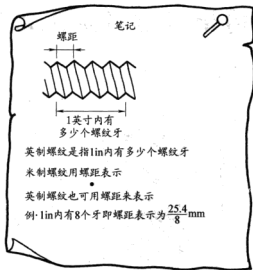 笔记
螺距
1英寸内有
多少个螺纹牙
英制螺纹是指1in内有多少个螺纹牙
米制螺纹用螺距表示
英制螺纹也可用螺距来表示
例·1in内有8个牙即螺距表示为25.4/8mm